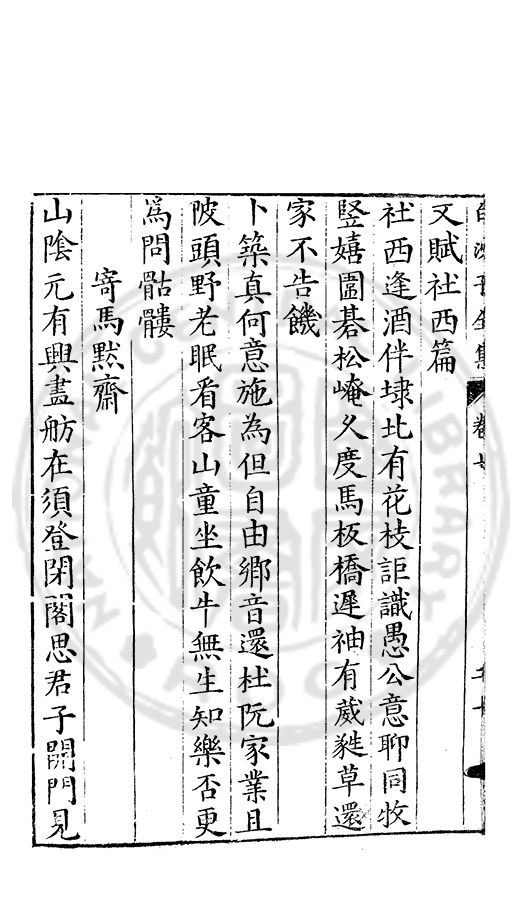 卷七
又賦社西篇
社西逢酒伴埭北有花枝詎識愚公意聊同牧
豎嬉圍碁松崦久度馬板橋遲袖有葳蕤草還
家不告饑
卜築真何意施為但自由鄉音還杜阮家業且
陂頭野老眠看客山童坐飲牛無生知樂否更
爲問骷髏
寄馬黙齋
山陰元有興盡舫在須登閉閣思君子開門見